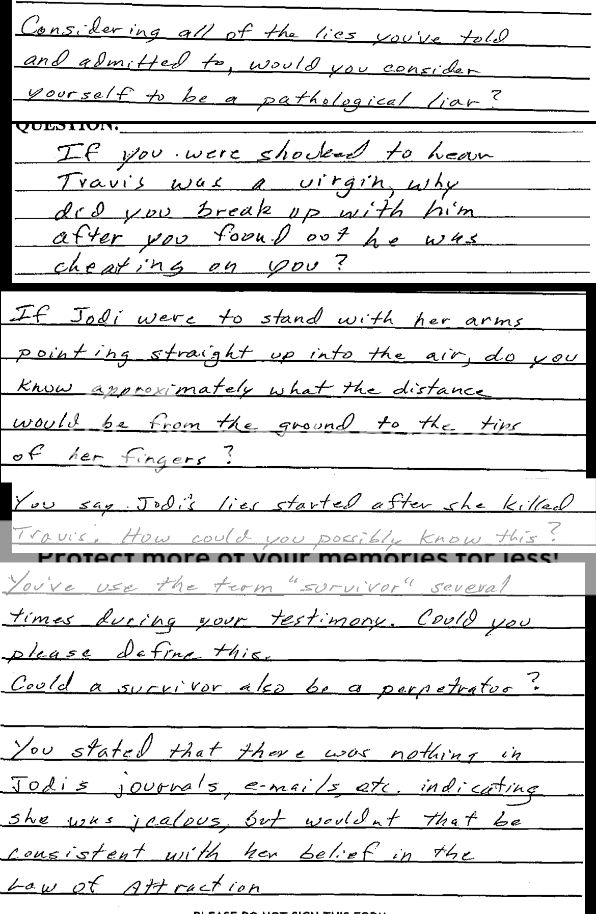 Considering all of the lies you've told
and admitted to, would you consider
yourself to be a pathological liar?
QUESTION:
If you were shocked to hear
Travis was a virgin, why
did you break up with him
after you found out he was
cheating on you?
If Jodi were to stand with her arms
pointing straight up into the air, do you
know approximately what the distance
would be from the ground to the tips
of her fingers?
You say Jodi's lies started after she killed
Travis. How could you possibly know this?
Protect more of your memories for less!
You've use the term "survivor" several
times during your testimony. Could you
please define this.
Could a survivor also be a perpetrator?
You stated that there was nothing in
Jodi's journals, e-mails, etc. indicating
she was jealous, but wouldn't that be
consistent with her belief in the
Law of Attraction
PLEASE DO NOT SIGN THIS FORM